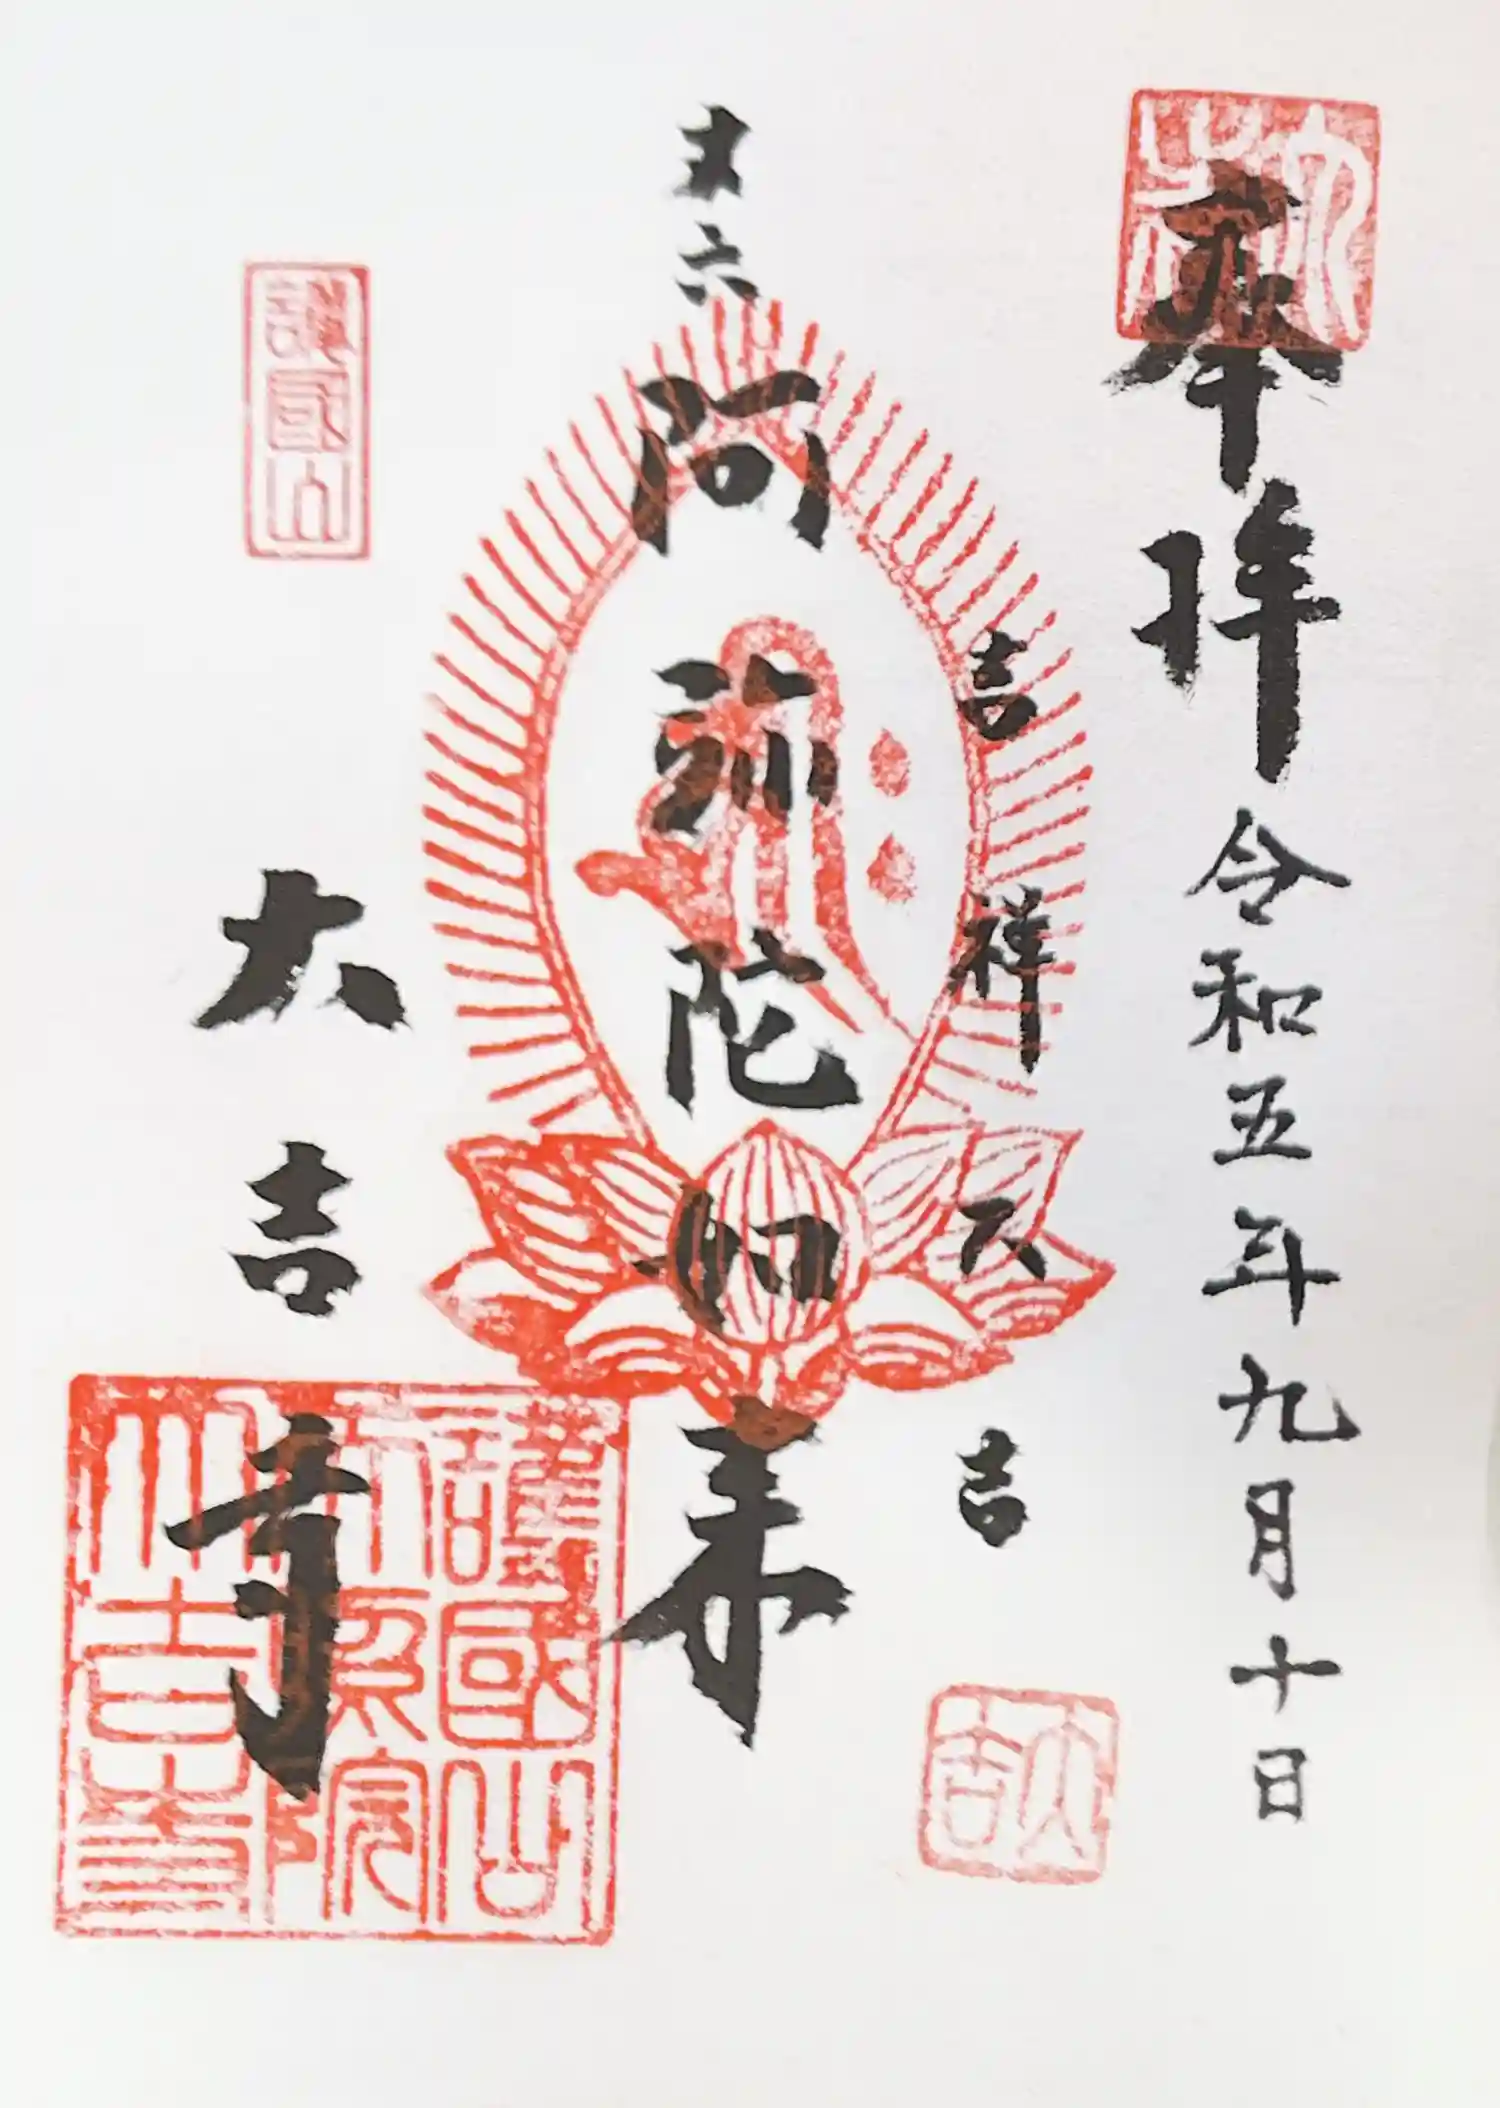 奉拝 令和五年九月十日
吉祥大吉
丈六
阿弥陀如来
大吉寺
護國山
護國山
大吉寺
大吉